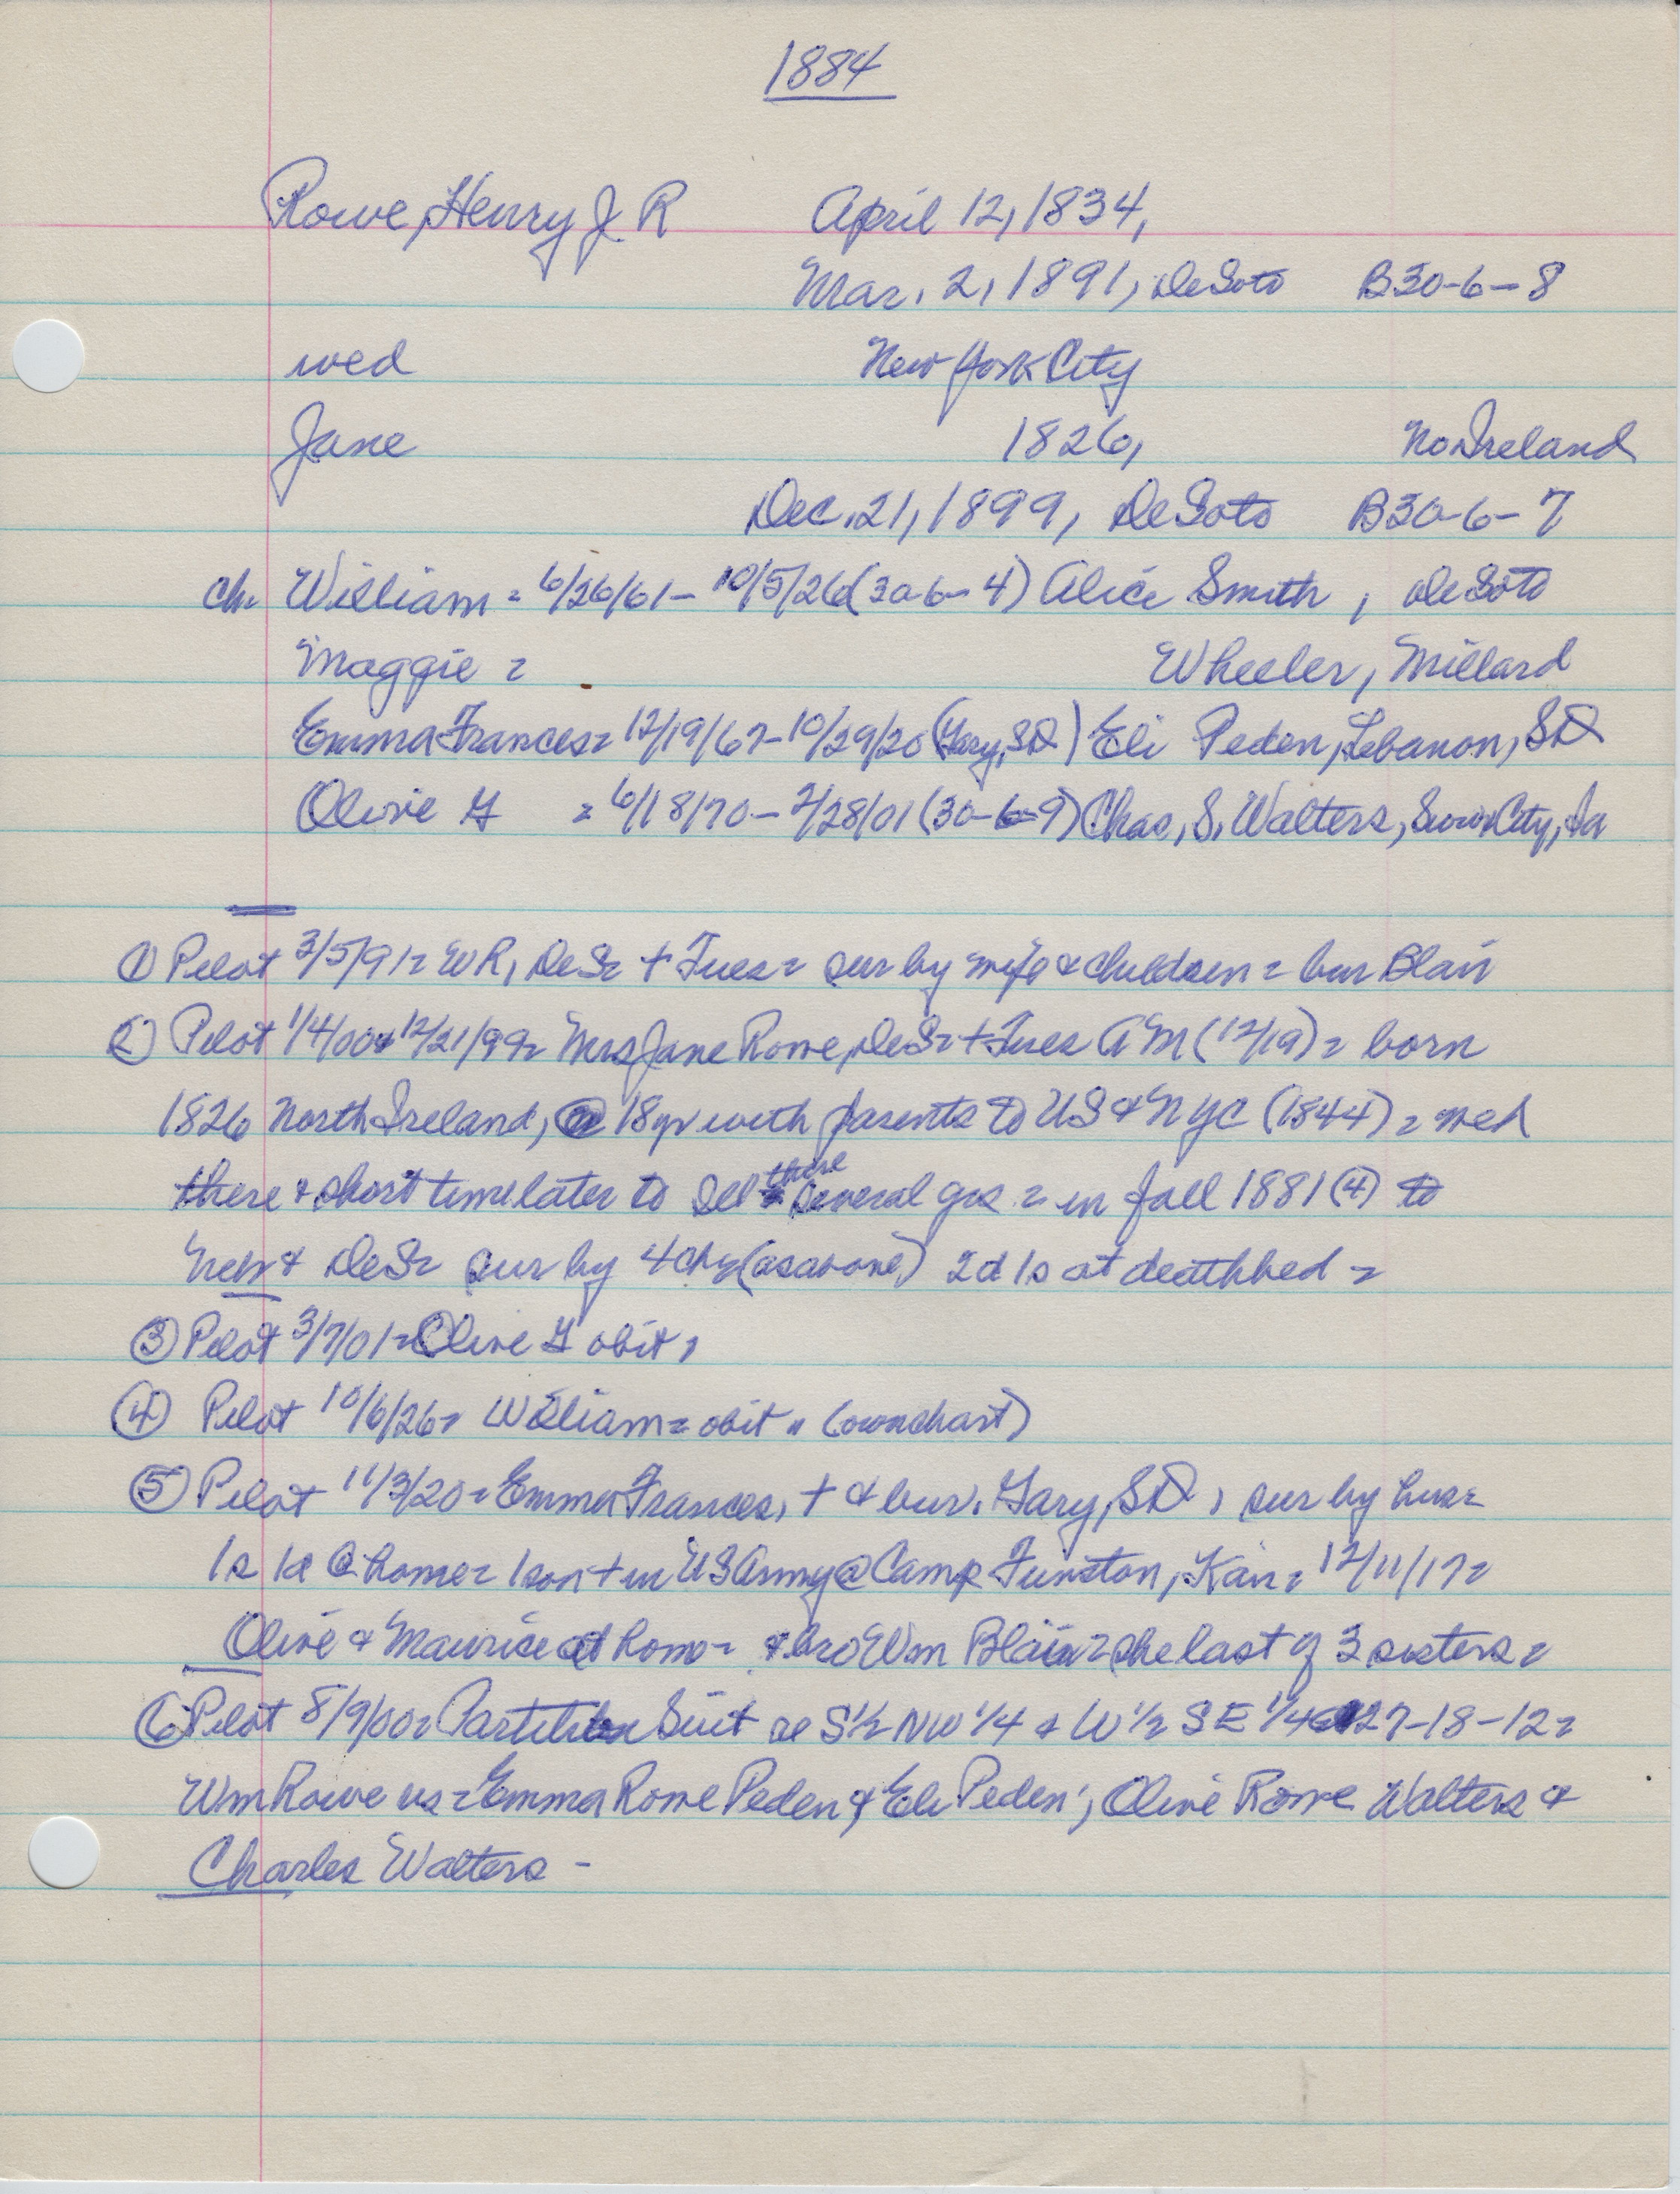 1884
Rowe, Henry J. R April 12, 1834,
Mar. 2, 1891, DeSoto B30-6-8
wed New York City
Jane 1826, No Ireland
Dec. 21, 1899, DeSoto B30-6-7
ch. William = 6/26/61 - 10/5/26 (30-6-4) Alice Smith, DeSoto
Maggie = Wheeler, Millard
Emma Frances = 12/19/67 - 10/29/20 (Gary, SD) Eli Peden, Lebanon, SD
Olive G = 6/18/70 - 2/28/01 (30-6-9) Chas. S. Walters, Sioux City, Ia
① Pilot 3/5/91 = WR, DeS = + Tues = sur by wife & children = bur Blair
② Pilot 1/4/00 & 12/21/99 = Mrs Jane Rowe, DeS = + Tues AM (12/19) = born
1826 North Ireland, @ 18 yr with parents to US & NYC (1844) = wed
there & short time later to Ill there several yrs = in fall 1881 (4) to
Neb & DeS = sur by 4 ch = (as above) 2d 1s at deathbed =
③ Pilot 3/7/01 = Olive G obit,
④ Pilot 10/6/26 = William = obit = (own chart)
⑤ Pilot 11/3/20 = Emma Frances, + & bur. Gary, SD, sur by hus =
1s 1d @ home = 1 son + in US Army @ Camp Funston, Kan = 12/11/17 =
Olive & Maurice at home = & bro Wm Blair = she last of 3 sisters =
⑥ Pilot 8/9/00 = Partition Suit re S 1/2 NW 1/4 & W 1/2 SE 1/4 27-18-12 =
Wm Rowe vs = Emma Rowe Peden & Eli Peden; Olive Rowe Walters &
Charles Walters -